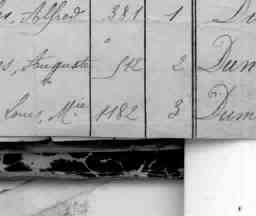 Alfred 381 1
Auguste 512 2 Dum
Louis, Mie 1182 3 Dum